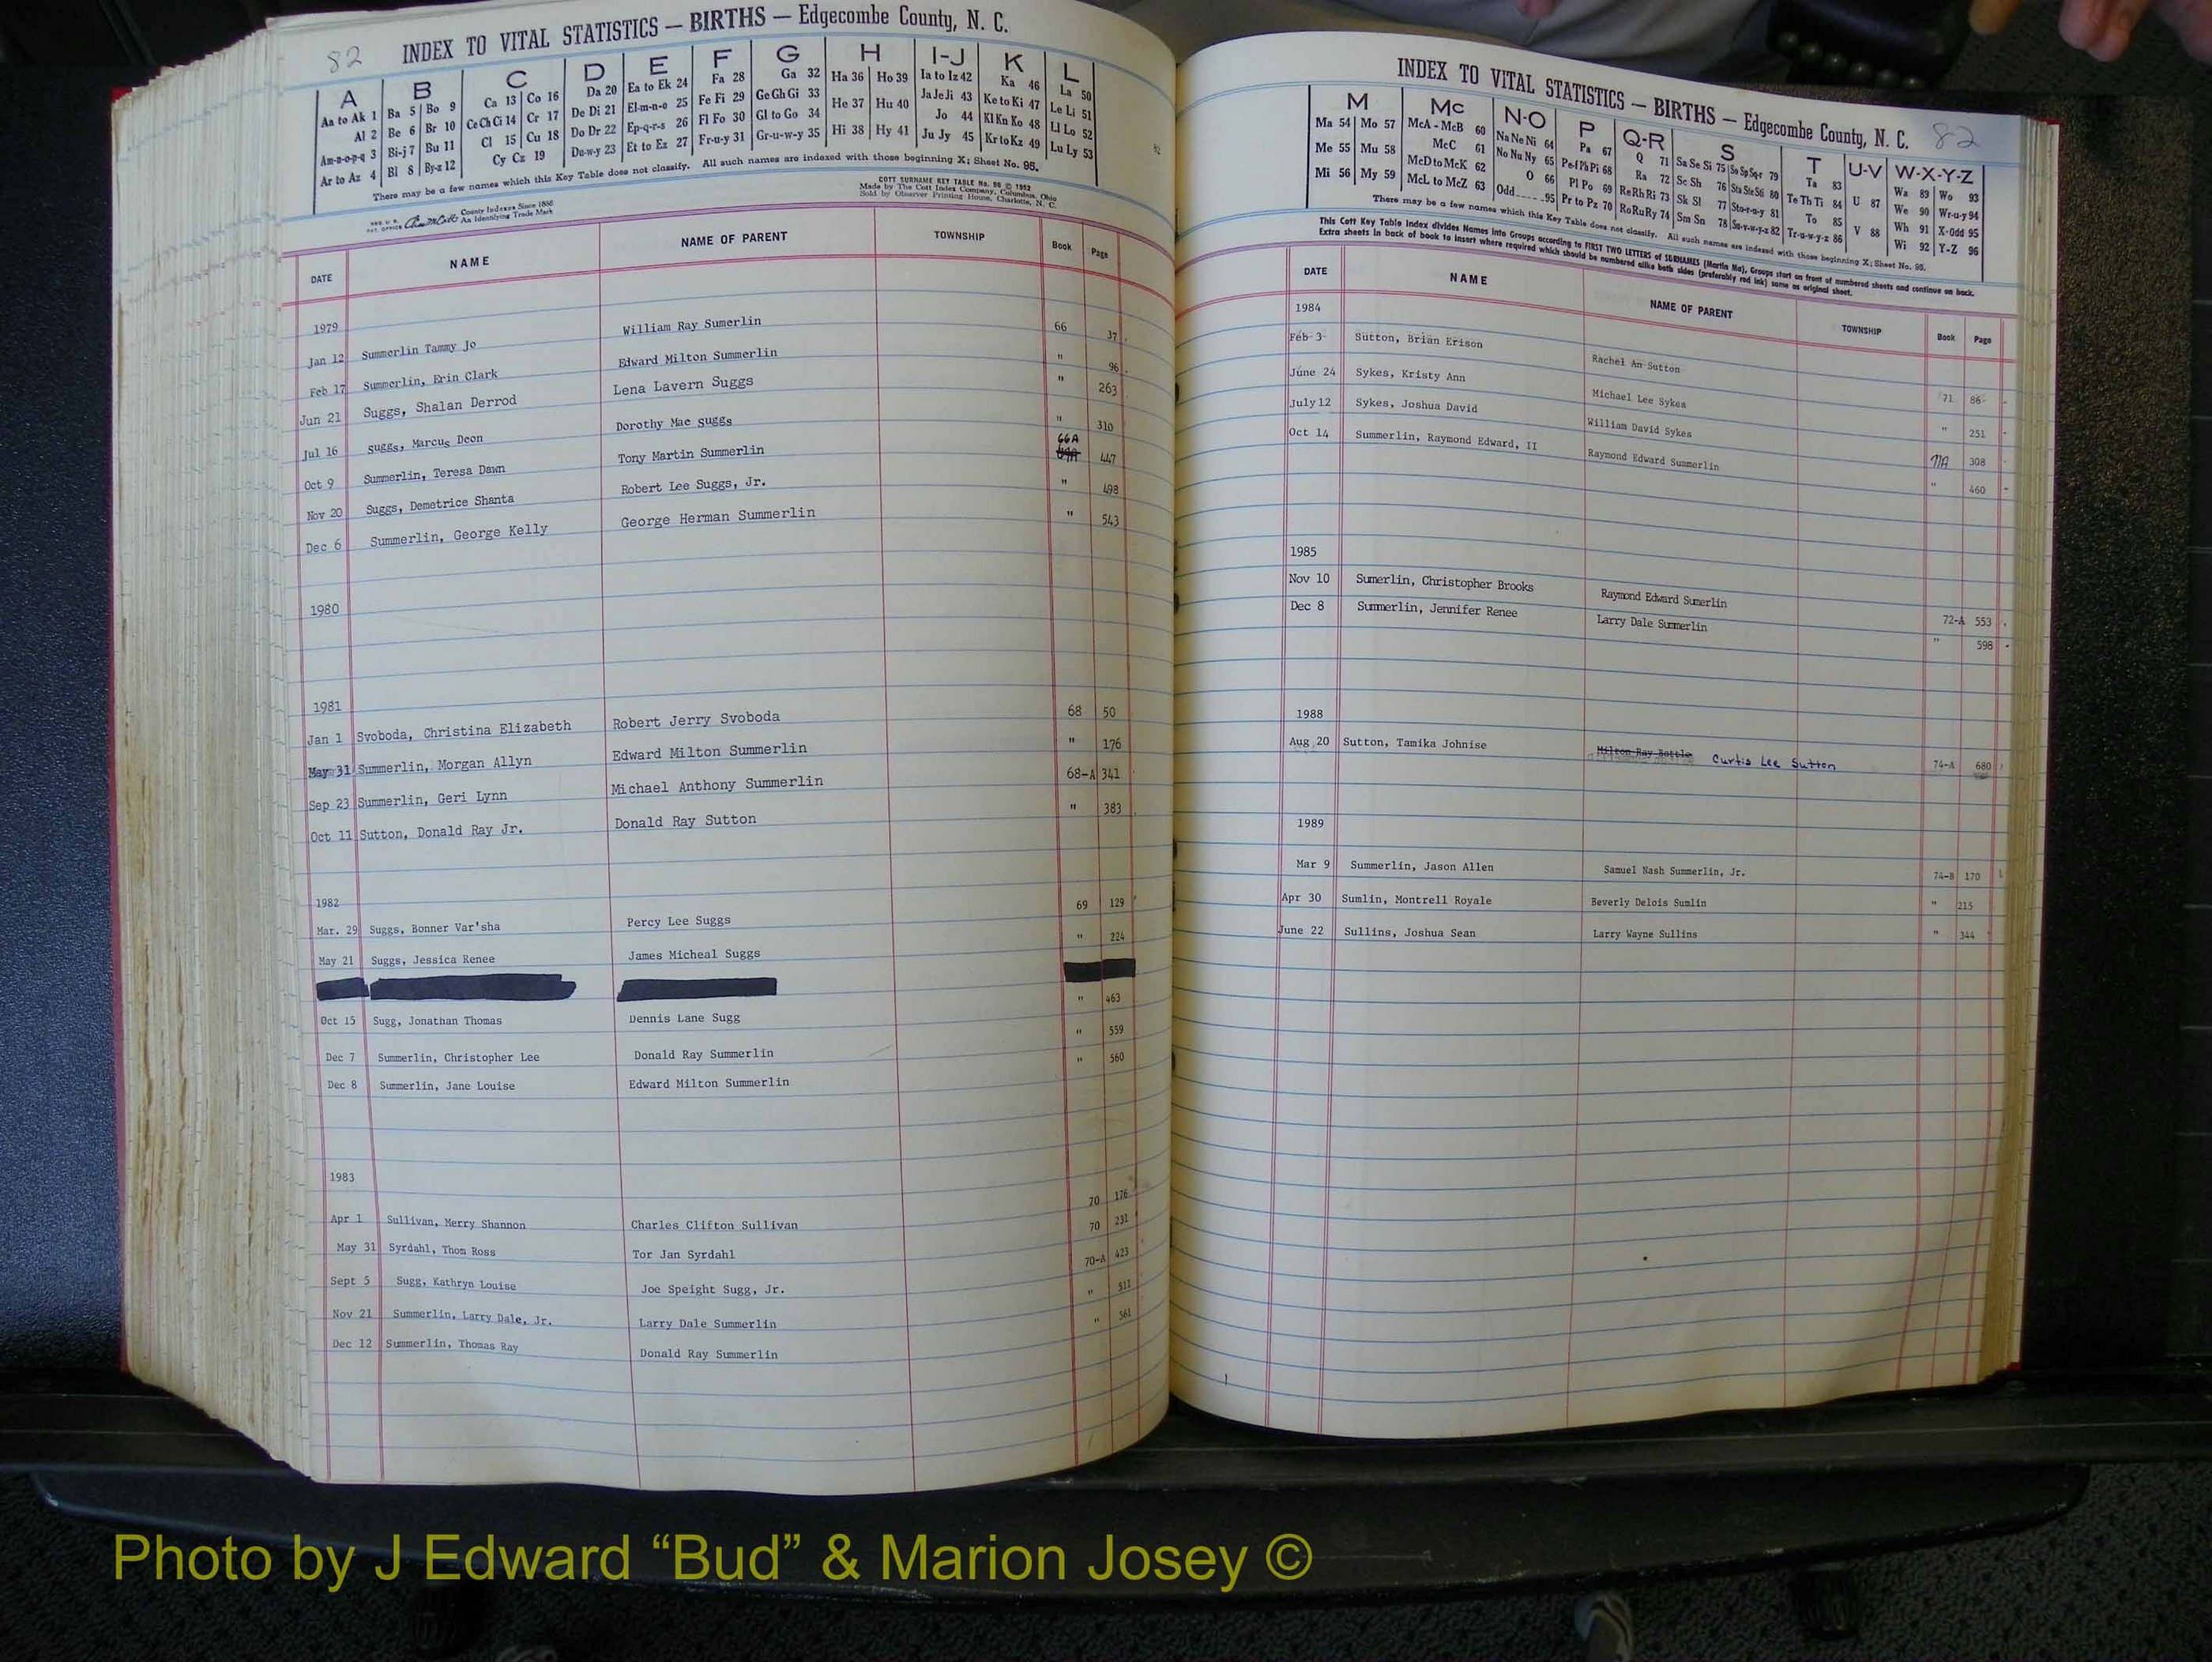 82 INDEX TO VITAL STATISTICS — BIRTHS — Edgecombe County, N. C.
A B C D E F G H I-J K L
Aa to Ak 1 Ba 5 Bo 9 Ca 13 Co 16 Da 20 Ea to Ek 24 Fa 28 Ga 32 Ha 36 Ho 39 Ia to Iz 42 Ka 46 La 50
Al 2 Be 6 Br 10 Ce Ch Ci 14 Cr 17 De Di 21 El-m-n-o 25 Fe Fi 29 Ge Gh Gi 33 He 37 Hu 40 Ja Je Ji 43 Ke to Ki 47 Le Li 51
Am-n-o-p-q 3 Bi-j 7 Bu 11 Cl 15 Cu 18 Do Dr 22 Ep-q-r-s 26 Fl Fo 30 Gl to Go 34 Hi 38 Hy 41 Jo 44 Kl Kn Ko 48 Ll Lo 52
Ar to Az 4 Bl 8 By-z 12 Cy Cz 19 Du-w-y 23 Et to Ez 27 Fr-u-y 31 Gr-u-w-y 35 Ju Jy 45 Kr to Kz 49 Lu Ly 53
There may be a few names which this Key Table does not classify. All such names are indexed with those beginning X; Sheet No. 95.
COTT SURNAME KEY TABLE No. 96 © 1952
Made by The Cott Index Company, Columbus, Ohio
Sold by Observer Printing House, Charlotte, N. C.
REG. U. S. PAT. OFFICE County Indexes Since 1888
An Identifying Trade Mark
DATE NAME NAME OF PARENT TOWNSHIP Book Page
1979
Jan 12 Summerlin Tammy Jo William Ray Sumerlin 66 37
Feb 17 Summerlin, Erin Clark Edward Milton Summerlin " 96
Jun 21 Suggs, Shalan Derrod Lena Lavern Suggs " 263
Jul 16 Suggs, Marcus Deon Dorothy Mae Suggs " 310
Oct 9 Summerlin, Teresa Dawn Tony Martin Summerlin 66A 447
Nov 20 Suggs, Demetrice Shanta Robert Lee Suggs, Jr. " 498
Dec 6 Summerlin, George Kelly George Herman Summerlin " 543
1980
1981
Jan 1 Svoboda, Christina Elizabeth Robert Jerry Svoboda 68 50
May 31 Summerlin, Morgan Allyn Edward Milton Summerlin " 176
Sep 23 Summerlin, Geri Lynn Michael Anthony Summerlin 68-A 341
Oct 11 Sutton, Donald Ray Jr. Donald Ray Sutton " 383
1982
Mar. 29 Suggs, Bonner Var'sha Percy Lee Suggs 69 129
May 21 Suggs, Jessica Renee James Micheal Suggs " 224
Oct 15 Sugg, Jonathan Thomas Dennis Lane Sugg " 463
Dec 7 Summerlin, Christopher Lee Donald Ray Summerlin " 559
Dec 8 Summerlin, Jane Louise Edward Milton Summerlin " 560
1983
Apr 1 Sullivan, Merry Shannon Charles Clifton Sullivan 70 176
May 31 Syrdahl, Thom Ross Tor Jan Syrdahl 70 231
Sept 5 Sugg, Kathryn Louise Joe Speight Sugg, Jr. 70-A 423
Nov 21 Summerlin, Larry Dale, Jr. Larry Dale Summerlin " 511
Dec 12 Summerlin, Thomas Ray Donald Ray Summerlin " 561
INDEX TO VITAL STATISTICS — BIRTHS — Edgecombe County, N. C. 82
M Mc N-O P Q-R S T U-V W-X-Y-Z
Ma 54 Mo 57 McA - McB 60 Na Ne Ni 64 Pa 67 Q 71 Sa Se Si 75 So Sp Sq-r 79 Ta 83 U 87 Wa 89 Wo 93
Me 55 Mu 58 McC 61 No Nu Ny 65 Pe-f Ph Pi 68 Ra 72 Sc Sh 76 Sta Ste Sti 80 Te Th Ti 84 V 88 We 90 Wr-u-y 94
Mi 56 My 59 McD to McK 62 O 66 Pl Po 69 Re Rh Ri 73 Sk Sl 77 Sto-r-u-y 81 To 85 Wh 91 X-Odd 95
McL to McZ 63 Odd 95 Pr to Pz 70 Ro Ru Ry 74 Sm Sn 78 Su-v-w-y-z 82 Tr-u-w-y-z 86 Wi 92 Y-Z 96
There may be a few names which this Key Table does not classify. All such names are indexed with those beginning X; Sheet No. 95.
This Cott Key Table Index divides Names into Groups according to FIRST TWO LETTERS of SURNAMES (Martin Ma), Groups start on front of numbered sheets and continue on back.
Extra sheets in back of book to insert where required which should be numbered alike both sides (preferably red ink) same as original sheet.
DATE NAME NAME OF PARENT TOWNSHIP Book Page
1984
Feb 3 Sutton, Brian Erison Rachel An Sutton 71 86
June 24 Sykes, Kristy Ann Michael Lee Sykes " 251
July 12 Sykes, Joshua David William David Sykes 71A 308
Oct 14 Summerlin, Raymond Edward, II Raymond Edward Summerlin " 460
1985
Nov 10 Sumerlin, Christopher Brooks Raymond Edward Sumerlin 72-A 553
Dec 8 Summerlin, Jennifer Renee Larry Dale Summerlin " 598
1988
Aug 20 Sutton, Tamika Johnise Milton Ray Battle Curtis Lee Sutton 74-A 680
1989
Mar 9 Summerlin, Jason Allen Samuel Nash Summerlin, Jr. 74-B 170
Apr 30 Sumlin, Montrell Royale Beverly Delois Sumlin " 215
June 22 Sullins, Joshua Sean Larry Wayne Sullins " 344
Photo by J Edward “Bud” & Marion Josey ©